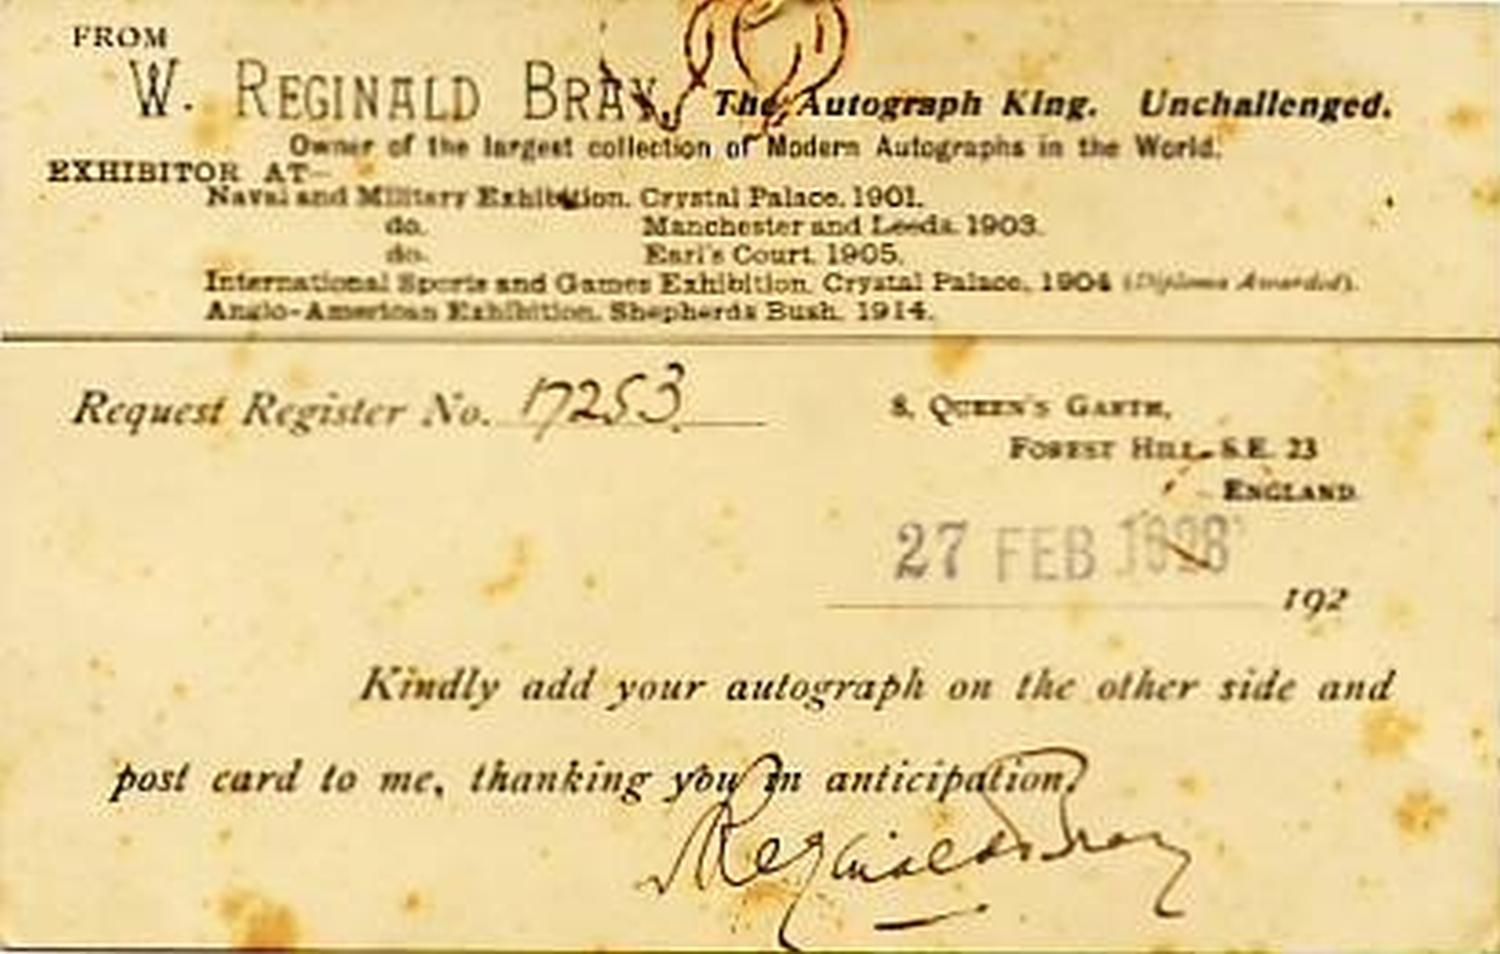 FROM
W. REGINALD BRAY, The Autograph King. Unchallenged.
Owner of the largest collection of Modern Autographs in the World.
EXHIBITOR AT—
Naval and Military Exhibition, Crystal Palace, 1901.
do. Manchester and Leeds, 1903.
do. Earl's Court, 1905.
International Sports and Games Exhibition, Crystal Palace, 1904 (Diploma Awarded).
Anglo-American Exhibition, Shepherds Bush, 1914.
Request Register No. 17253
8, QUEEN'S GARTH,
FOREST HILL, S.E. 23
ENGLAND.
27 FEB
192
Kindly add your autograph on the other side and
post card to me, thanking you in anticipation.
Reginald Bray